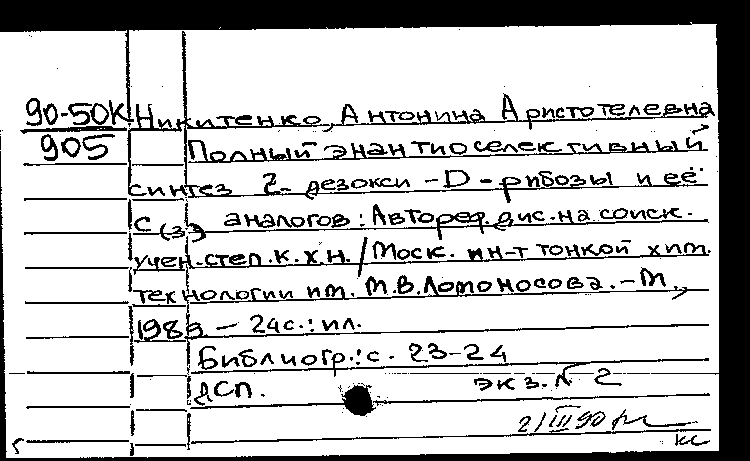 90-50К Никитенко, Антонина Аристотелевна
905 Полный энантиоселективный
синтез 2-дезокси-D-рибозы и её
С(3') аналогов: Автореф. дис. на соиск.
учен. степ. к.х.н. / Моск. ин-т тонкой хим.
технологии им. М.В. Ломоносова. - М.,
1989 - 24с.: ил.
Библиогр.: с. 23-24
ДСП. экз. N 2
2/III 90
кс